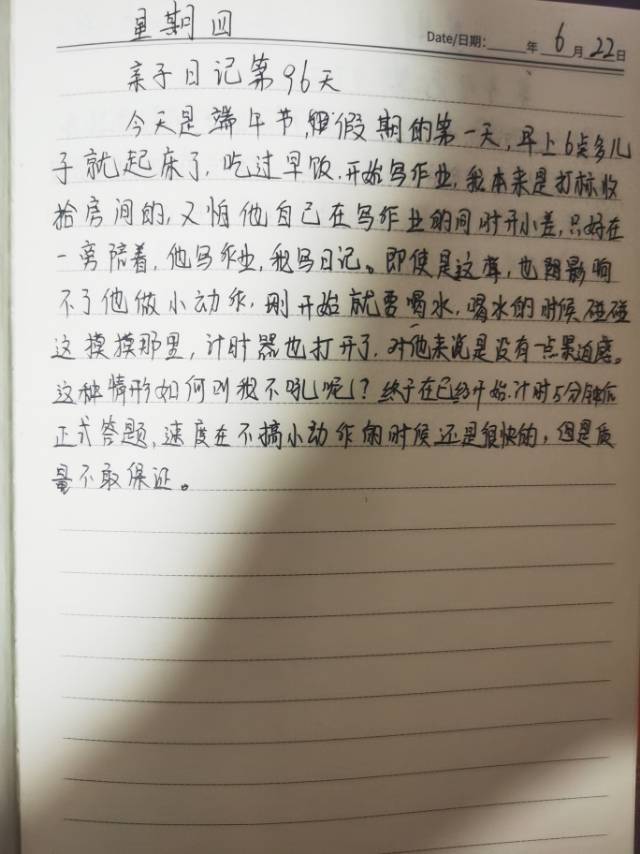 星期四
Date/日期: 年 6月 22日
亲子日记第96天
今天是端午节,假期的第一天,早上6点多儿
子就起床了,吃过早饭,开始写作业,我本来是打标收
拾房间的,又怕他自己在写作业的同时开小差,只好在
一旁陪着,他写作业,我写日记。即使是这样,也影响
不了他做小动作,刚开始就要喝水,喝水的时候碰碰
这摸摸那里,计时器也打开了,对他来说是没有一点紧迫感。
这种情形如何叫我不吼呢?终于在已经开始计时5分钟后
正式答题,速度在不搞小动作的时候还是很快的,但是质
量不敢保证。